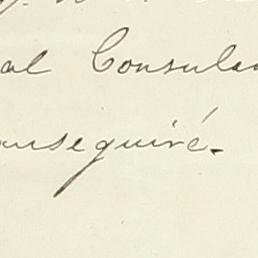 al Consula
nseguiré.